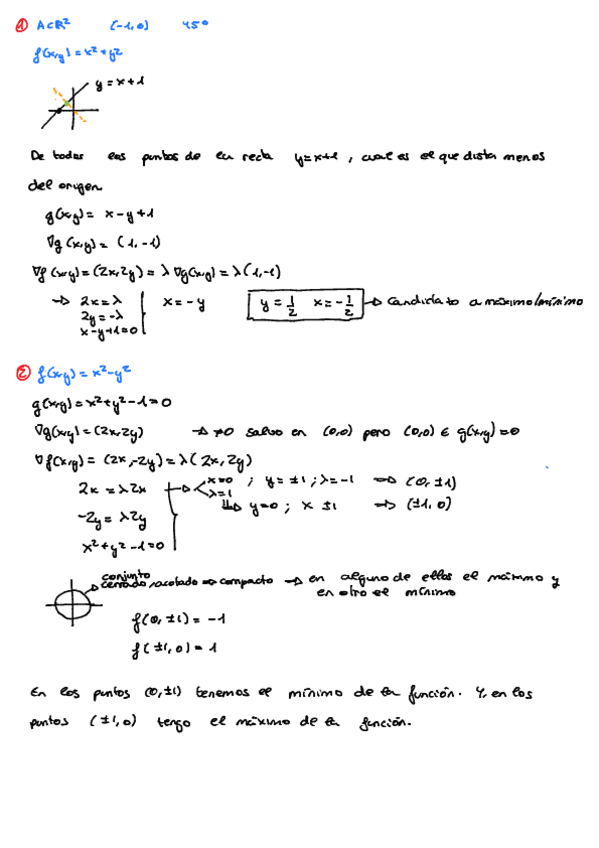 ① A⊂R² (-1,0) 45º
f(x,y) = x²+y²
y = x+1
De todos los puntos de la recta y=x+1, cual es el que dista menos
del origen
g(x,y) = x-y+1
∇g(x,y) = (1,-1)
∇f(x,y) = (2x,2y) = λ∇g(x,y) = λ(1,-1)
→ 2x=λ x=-y y=1/2 x=-1/2 → Candidato a máximo/mínimo
2y=-λ
x-y+1=0
② f(x,y) = x²-y²
g(x,y) = x²+y²-1=0
∇g(x,y) = (2x,2y) → ≠0 salvo en (0,0) pero (0,0) ∈ g(x,y)=0
∇f(x,y) = (2x,-2y) = λ(2x,2y)
2x=λ2x → x=0 ; y=±1; λ=-1 → (0,±1)
λ=1
⇒ y=0; x ±1 → (±1,0)
-2y=λ2y
x²+y²-1=0
conjunto
cerrado, acotado ⇒ compacto → en alguno de ellos el máximo y
en otro el mínimo
f(0,±1) = -1
f(±1,0) = 1
En los puntos (0,±1) tenemos el mínimo de la función. Y, en los
puntos (±1,0) tengo el máximo de la función.